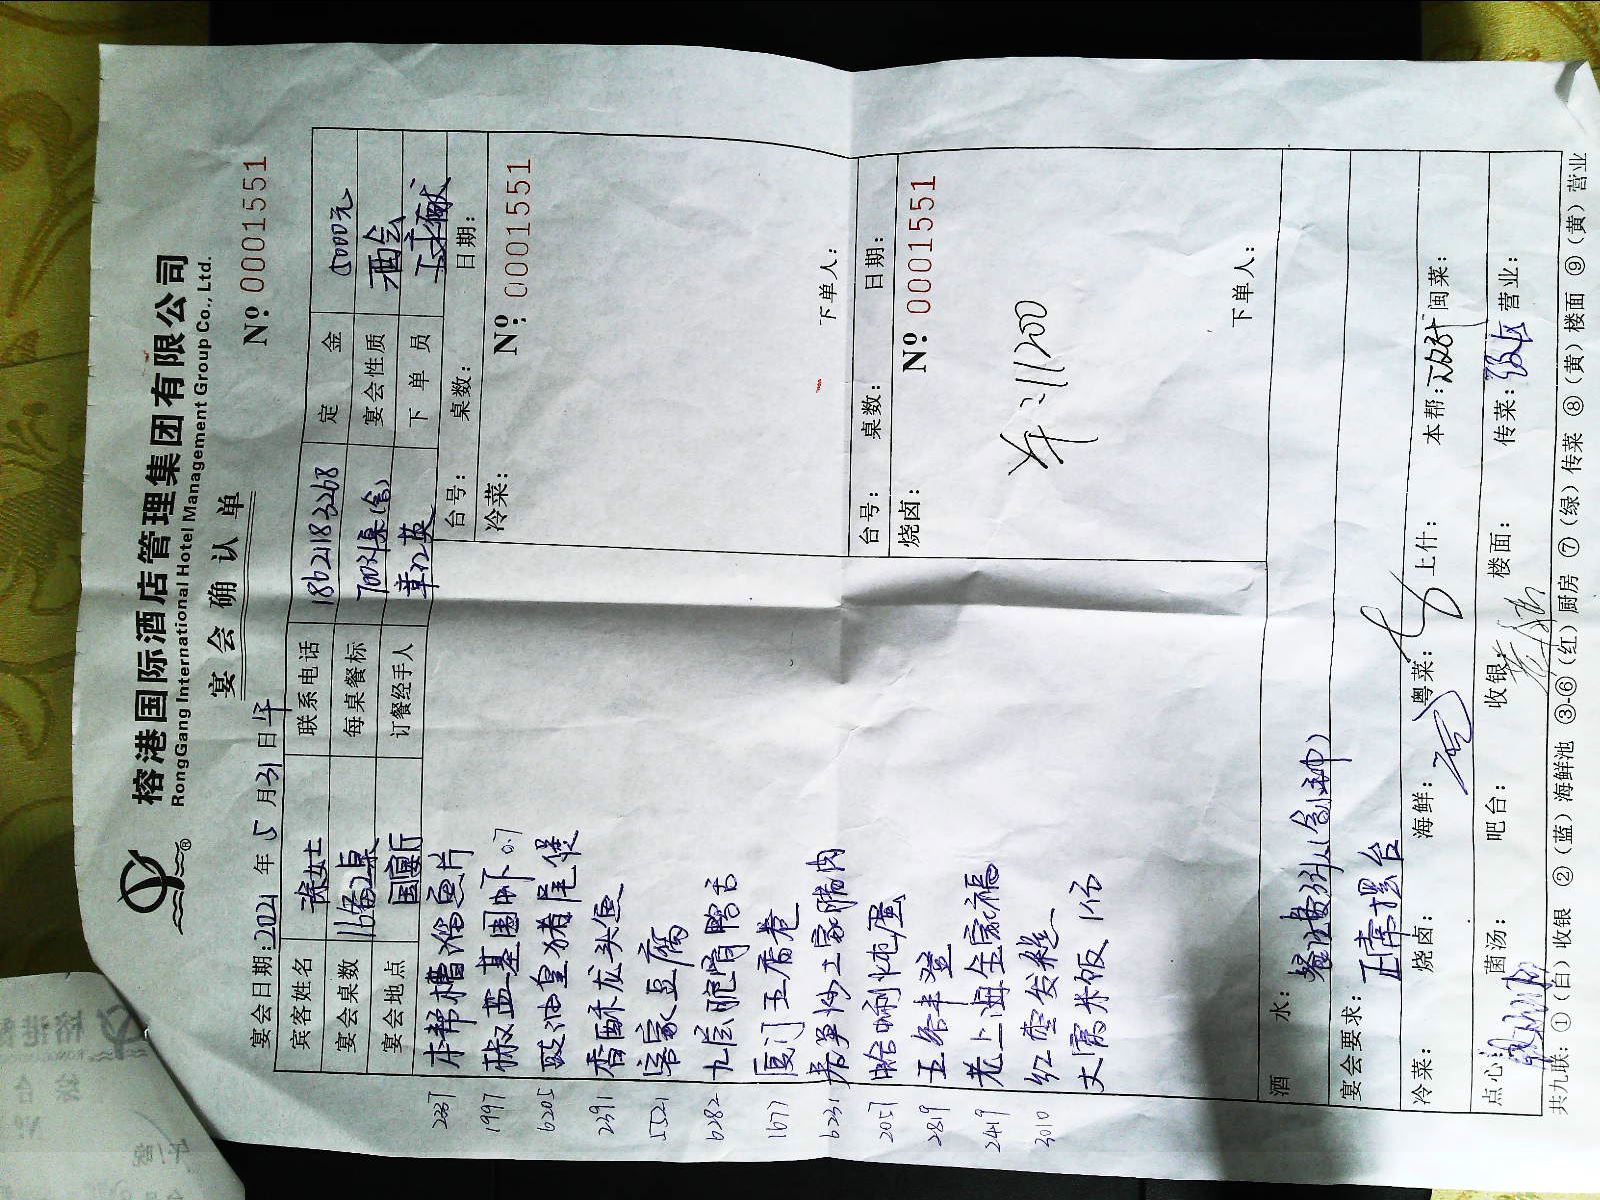 榕港国际酒店管理集团有限公司
RongGang International Hotel Management Group Co., Ltd.
宴会确认单
宴会日期:2021年5月31日午 Nº 0001551
宾客姓名 徐女士 联系电话 18621183268 定金 5000元
宴会桌数 每桌餐标 宴会性质 酒会
宴会地点 国宴厅 订餐经手人 下单员
台号: 桌数: 日期:
冷菜: Nº: 0001551
下单人:
台号: 桌数: 日期:
烧卤: Nº 0001551
羊:11200
下单人:
2237 本帮糟溜鱼片
1997 椒盐基围虾 0.7
6205 豉油皇猪尾煲
2391 香酥龙头鱼
5521 客家豆腐
6282 九层脆骨鸭舌
1677 厦门五香卷
6231 炒土家腊肉
2057 蛤蜊炖蛋
2819
2419 老上海全家福
3010 红枣发糕
大富米饭 1份
酒水:
宴会要求: 正常摆台
冷菜: 烧卤: 海鲜: 粤菜: 上什: 本帮: 闽菜:
点心: 菌汤: 吧台: 收银: 楼面: 传菜: 营业:
共九联:①(白)收银 ②(蓝)海鲜池 ③-⑥(红)厨房 ⑦(绿)传菜 ⑧(黄)楼面 ⑨(黄)营业